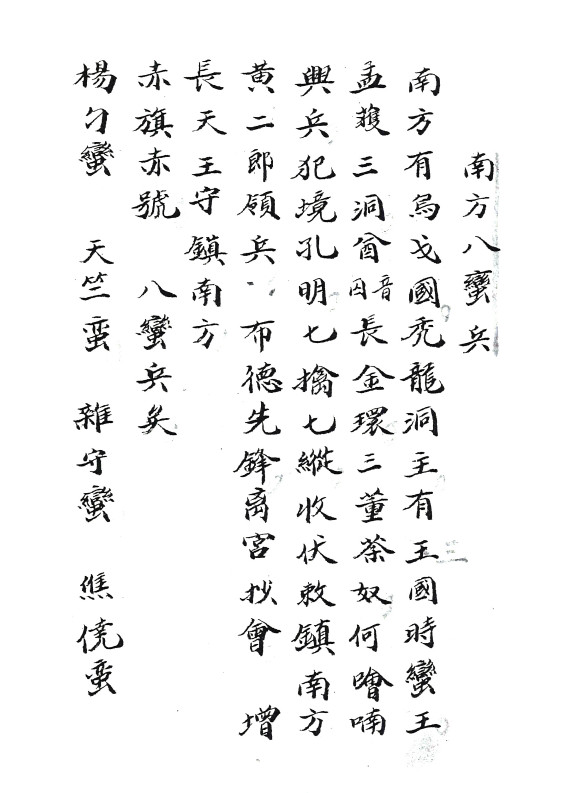 南方八蠻兵
南方有烏戈國禿龍洞主有王國時蠻王
孟獲三洞酋音因長金環三董荼奴何噲喃
興兵犯境孔明七擒七縱收伏敕鎮南方
黄二郎領兵 布德先鋒离宮抄會 增
長天王守鎮南方
赤旗赤號 八蠻兵矣
楊刁蠻 天竺蛮 雜守蠻 僬僥蛮